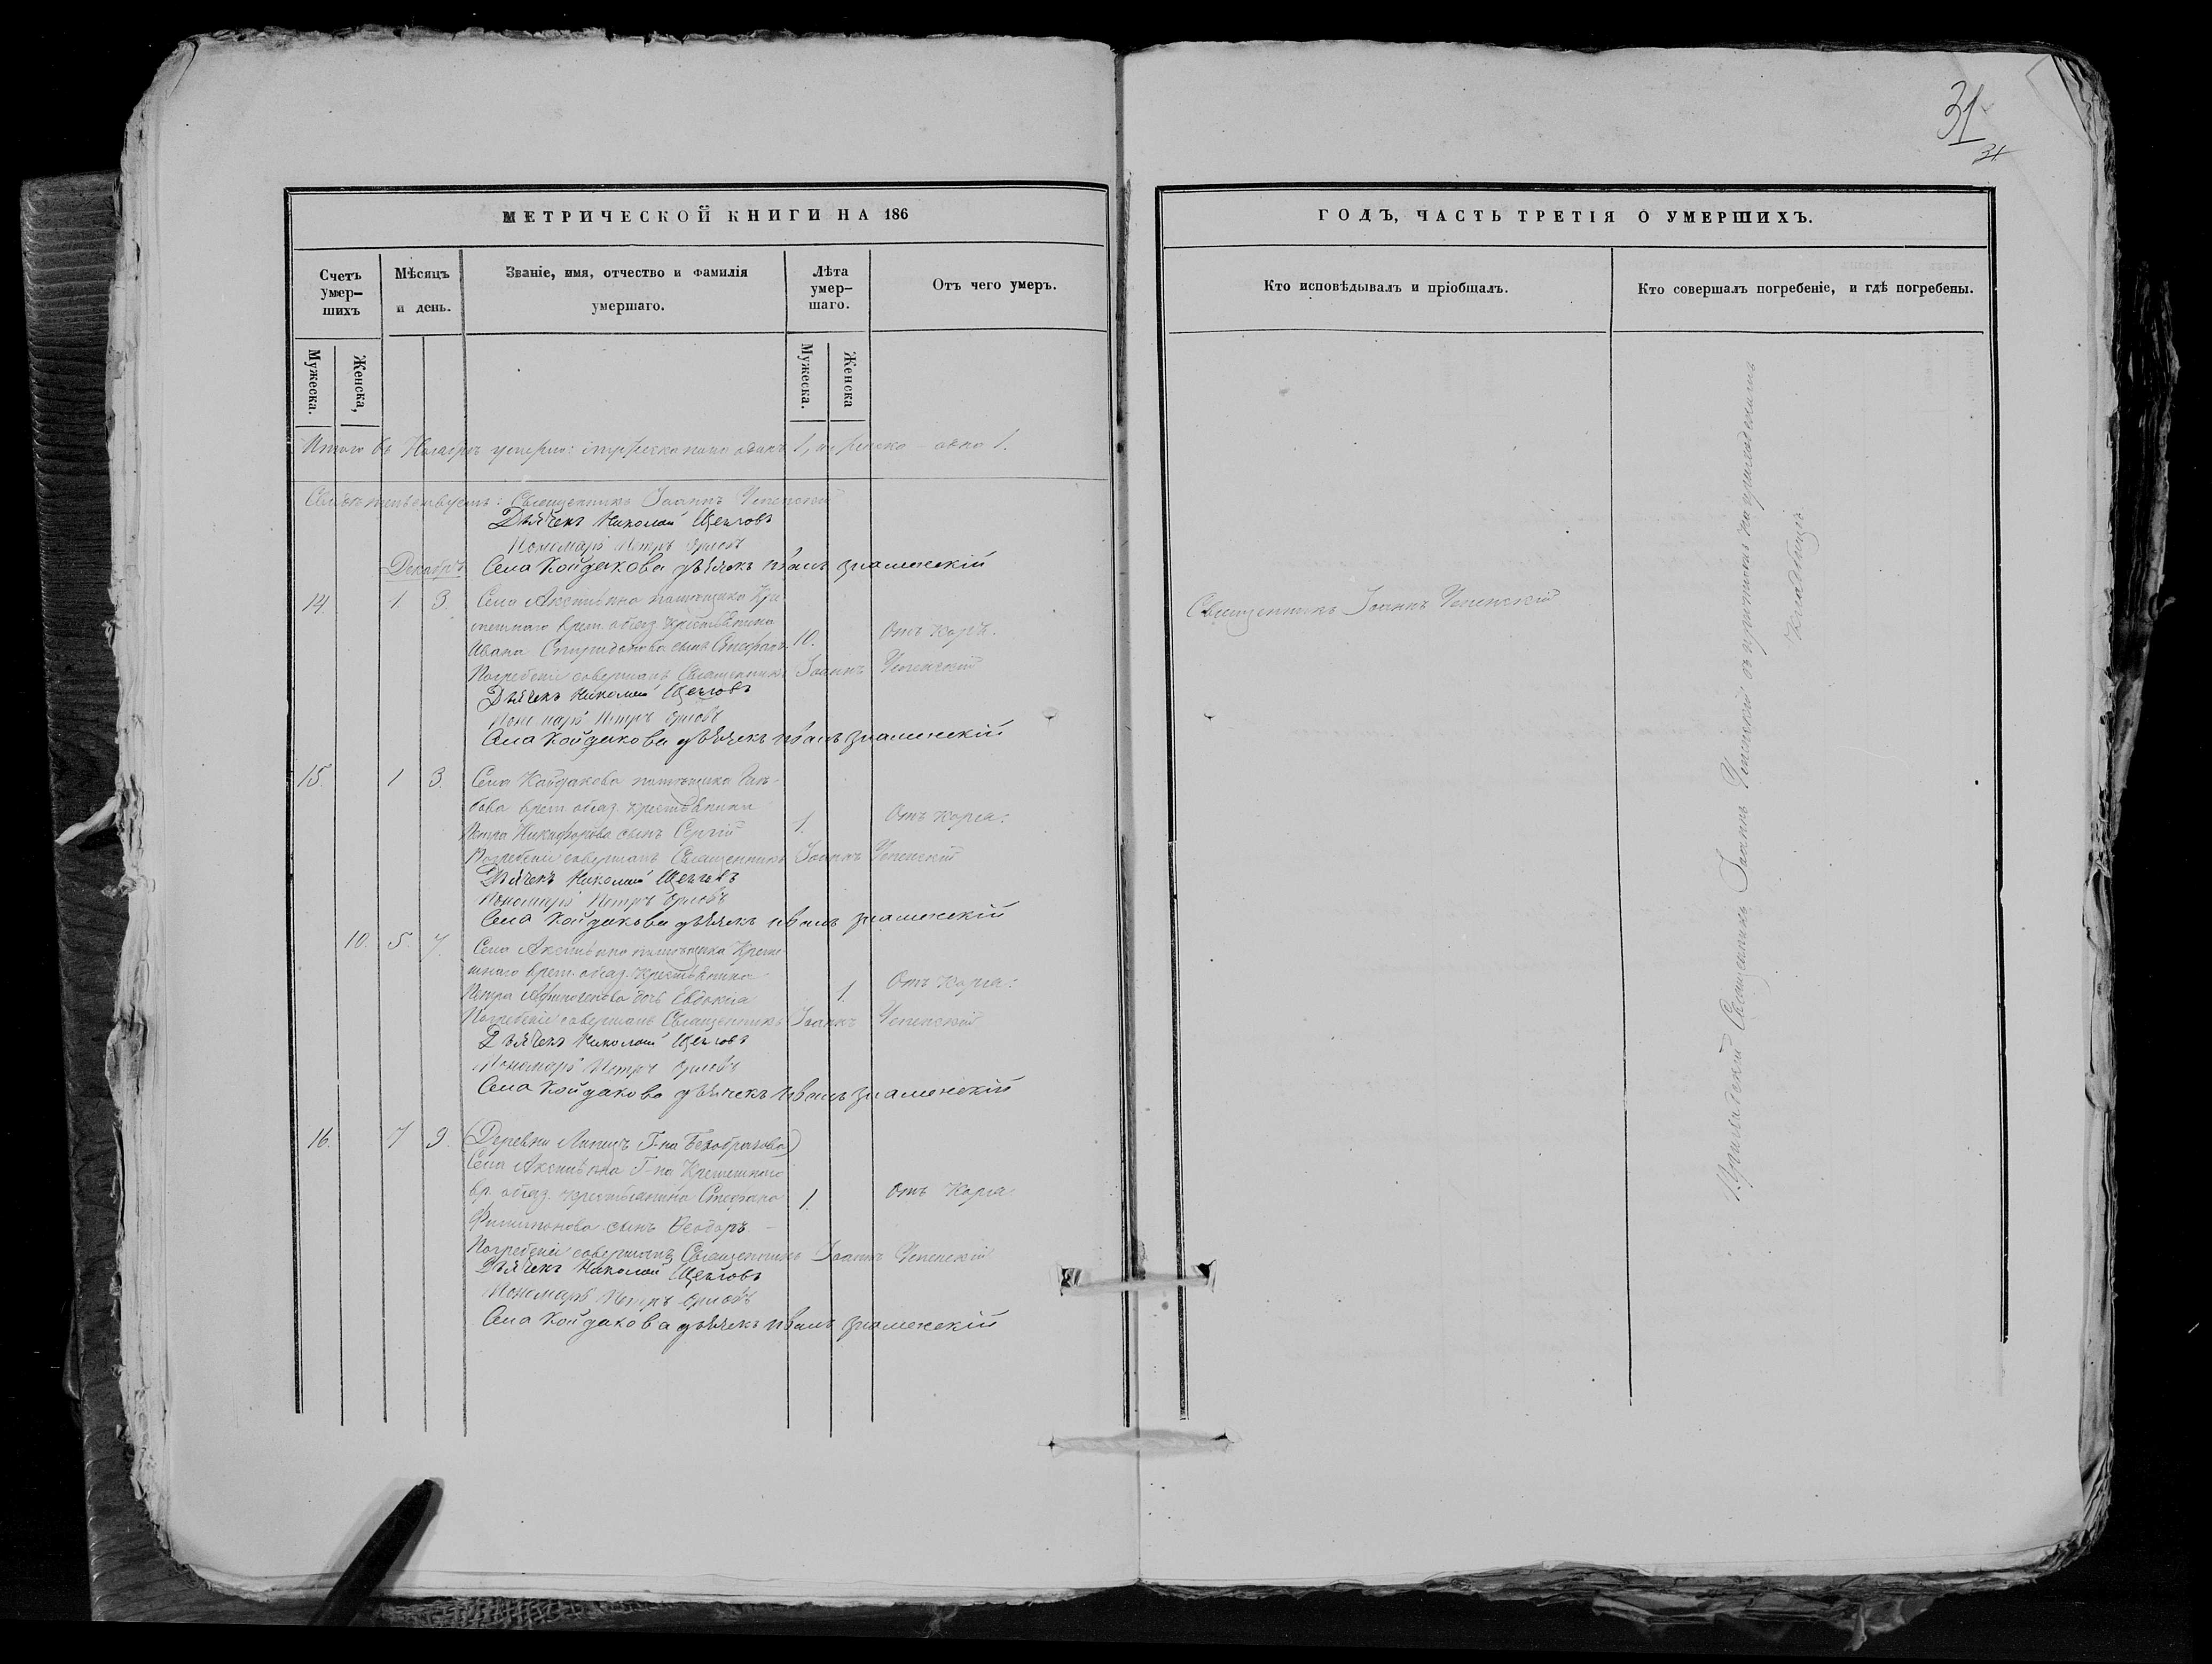 31
31
МЕТРИЧЕСКОЙ КНИГИ НА 186
Счетъ умер-шихъ
Мѣсяцъ и день.
Званіе, имя, отчество и фамилія умершаго.
Лѣта умер-шаго.
Отъ чего умеръ.
Мужеска.
Женска,
Мужеска.
Женска
Итого въ Ноябрѣ умерло: мужеска пола одинъ 1, и женска одна 1.
Свидѣтельствуетъ: Священникъ Іоаннъ Успенскій
Дьячекъ Николай Щегловъ
Пономарь Петръ Орловъ
Декабрь
Села Койдакова дьячекъ Иванъ Знаменскій
14. 1 3. Села Аксиньина помѣщика
врем. обяз. крестьянина
Ивана Спиридонова сынъ Стефанъ 10. Отъ кори.
Священникъ Іоаннъ Успенскій
Погребеніе совершалъ Священникъ Іоаннъ Успенскій
Дьячекъ Николай Щегловъ
Пономарь Петръ Орловъ
Села Койдакова дьячекъ Иванъ Знаменскій
15. 1 3. Села Койдакова помѣщика
врем. обяз. крестьянина
Петра Никифорова сынъ Сергій 1. Отъ корья.
Погребеніе совершалъ Священникъ Іоаннъ Успенскій
Дьячекъ Николай Щегловъ
Пономарь Петръ Орловъ
Села Койдакова дьячекъ Иванъ Знаменскій
10. 5. 7. Села Аксиньина помѣщика
врем. обяз. крестьянина
Петра дочь Евдокія 1. Отъ корья.
Погребеніе совершалъ Священникъ Іоаннъ Успенскій
Дьячекъ Николай Щегловъ
Пономарь Петръ Орловъ
Села Койдакова дьячекъ Иванъ Знаменскій
16. 7 9. (Деревни Липицъ Г-на Безобразова)
Села Аксиньина Г-на
вр. обяз. крестьянина Стефана 1. Отъ Корья.
Филипонова сынъ Ѳеодоръ
Погребеніе совершалъ Священникъ Іоаннъ Успенскій
Дьячекъ Николай Щегловъ
Пономарь Петръ Орловъ
Села Койдакова дьячекъ Иванъ Знаменскій
ГОДЪ, ЧАСТЬ ТРЕТІЯ О УМЕРШИХЪ.
Кто исповѣдывалъ и пріобщалъ.
Кто совершалъ погребеніе, и гдѣ погребены.
Приходскій Священникъ Іоаннъ Успенскій съ причтомъ на приходскомъ
кладбищѣ